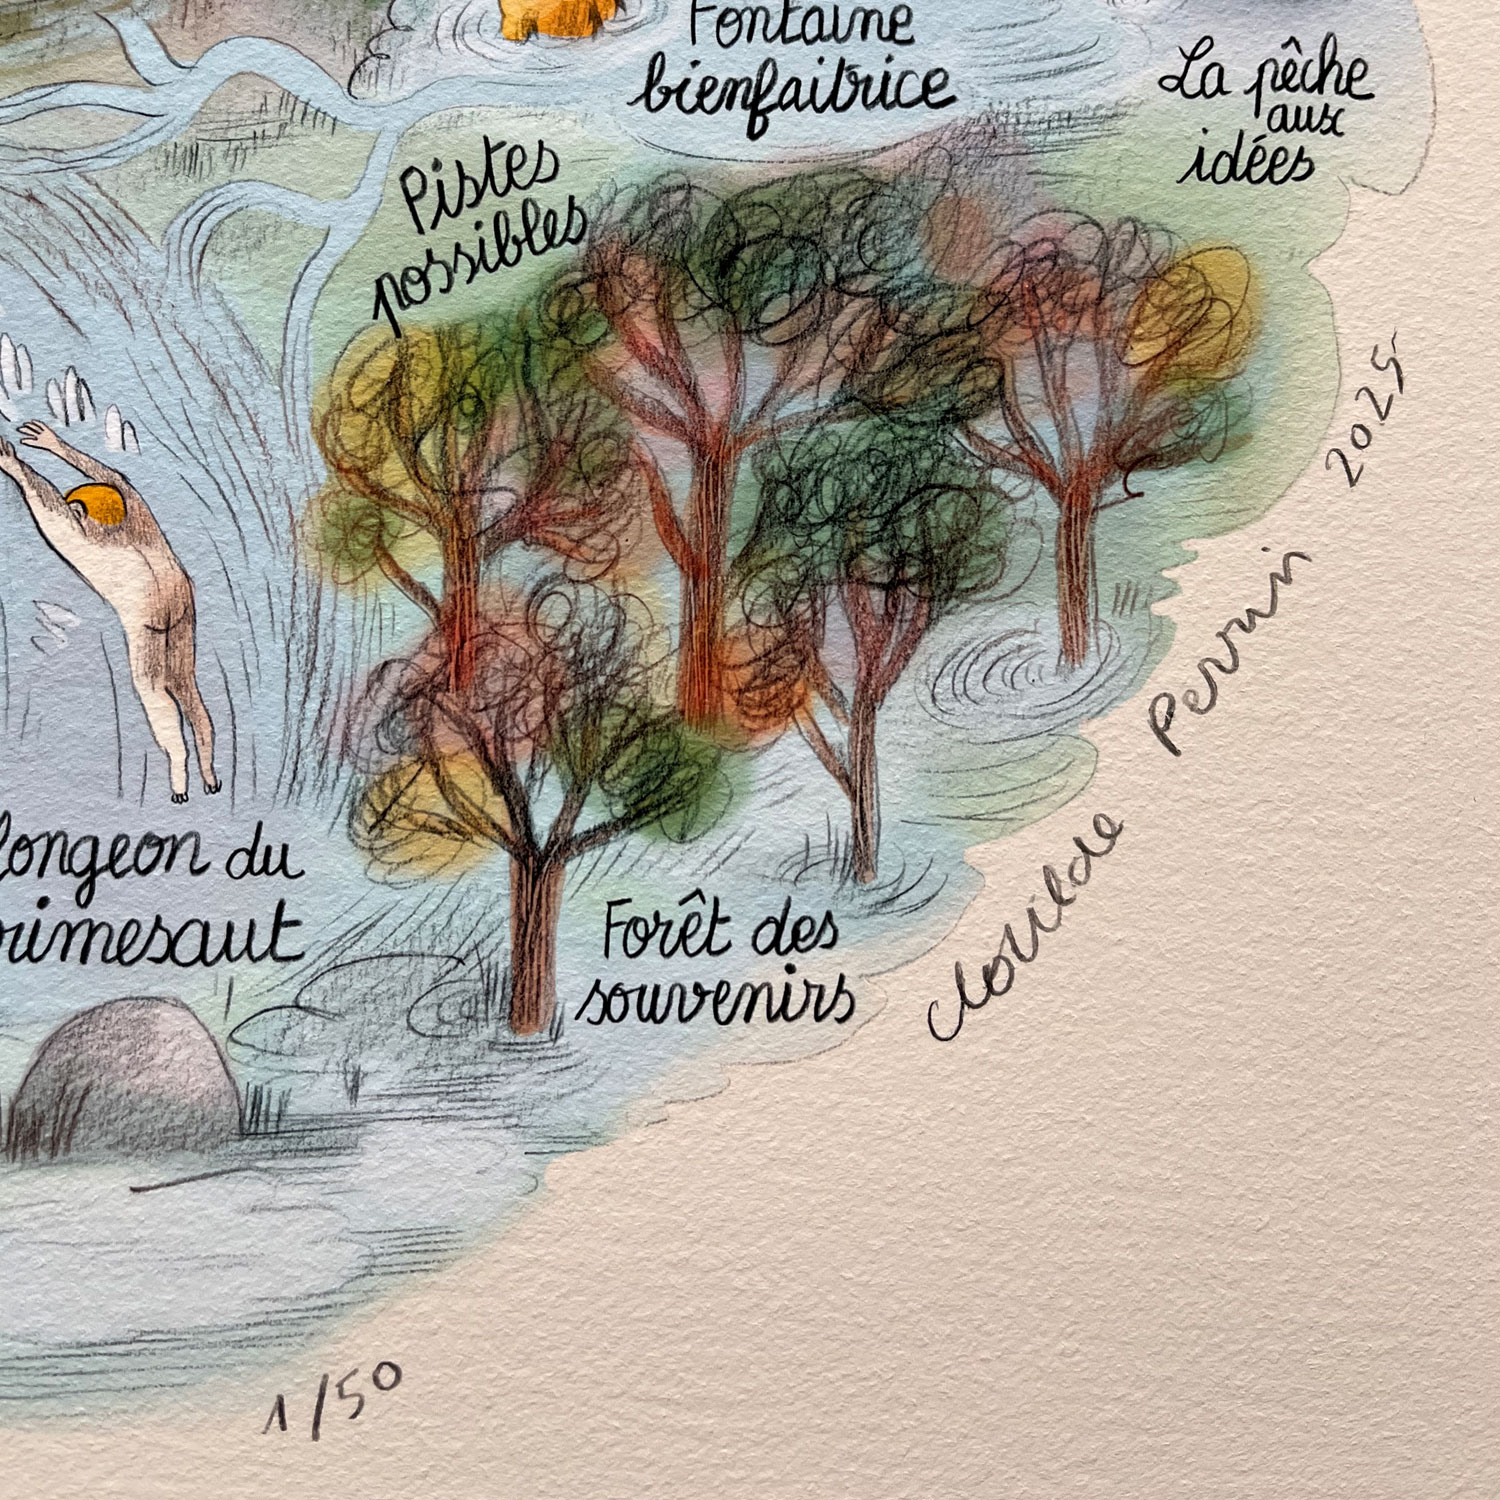 Fontaine
bienfaitrice
La pêche
aux
idées
Pistes
possibles
longeon du
rimesaut
Forêt des
souvenirs
Clotilde Perrin 2025
1/50